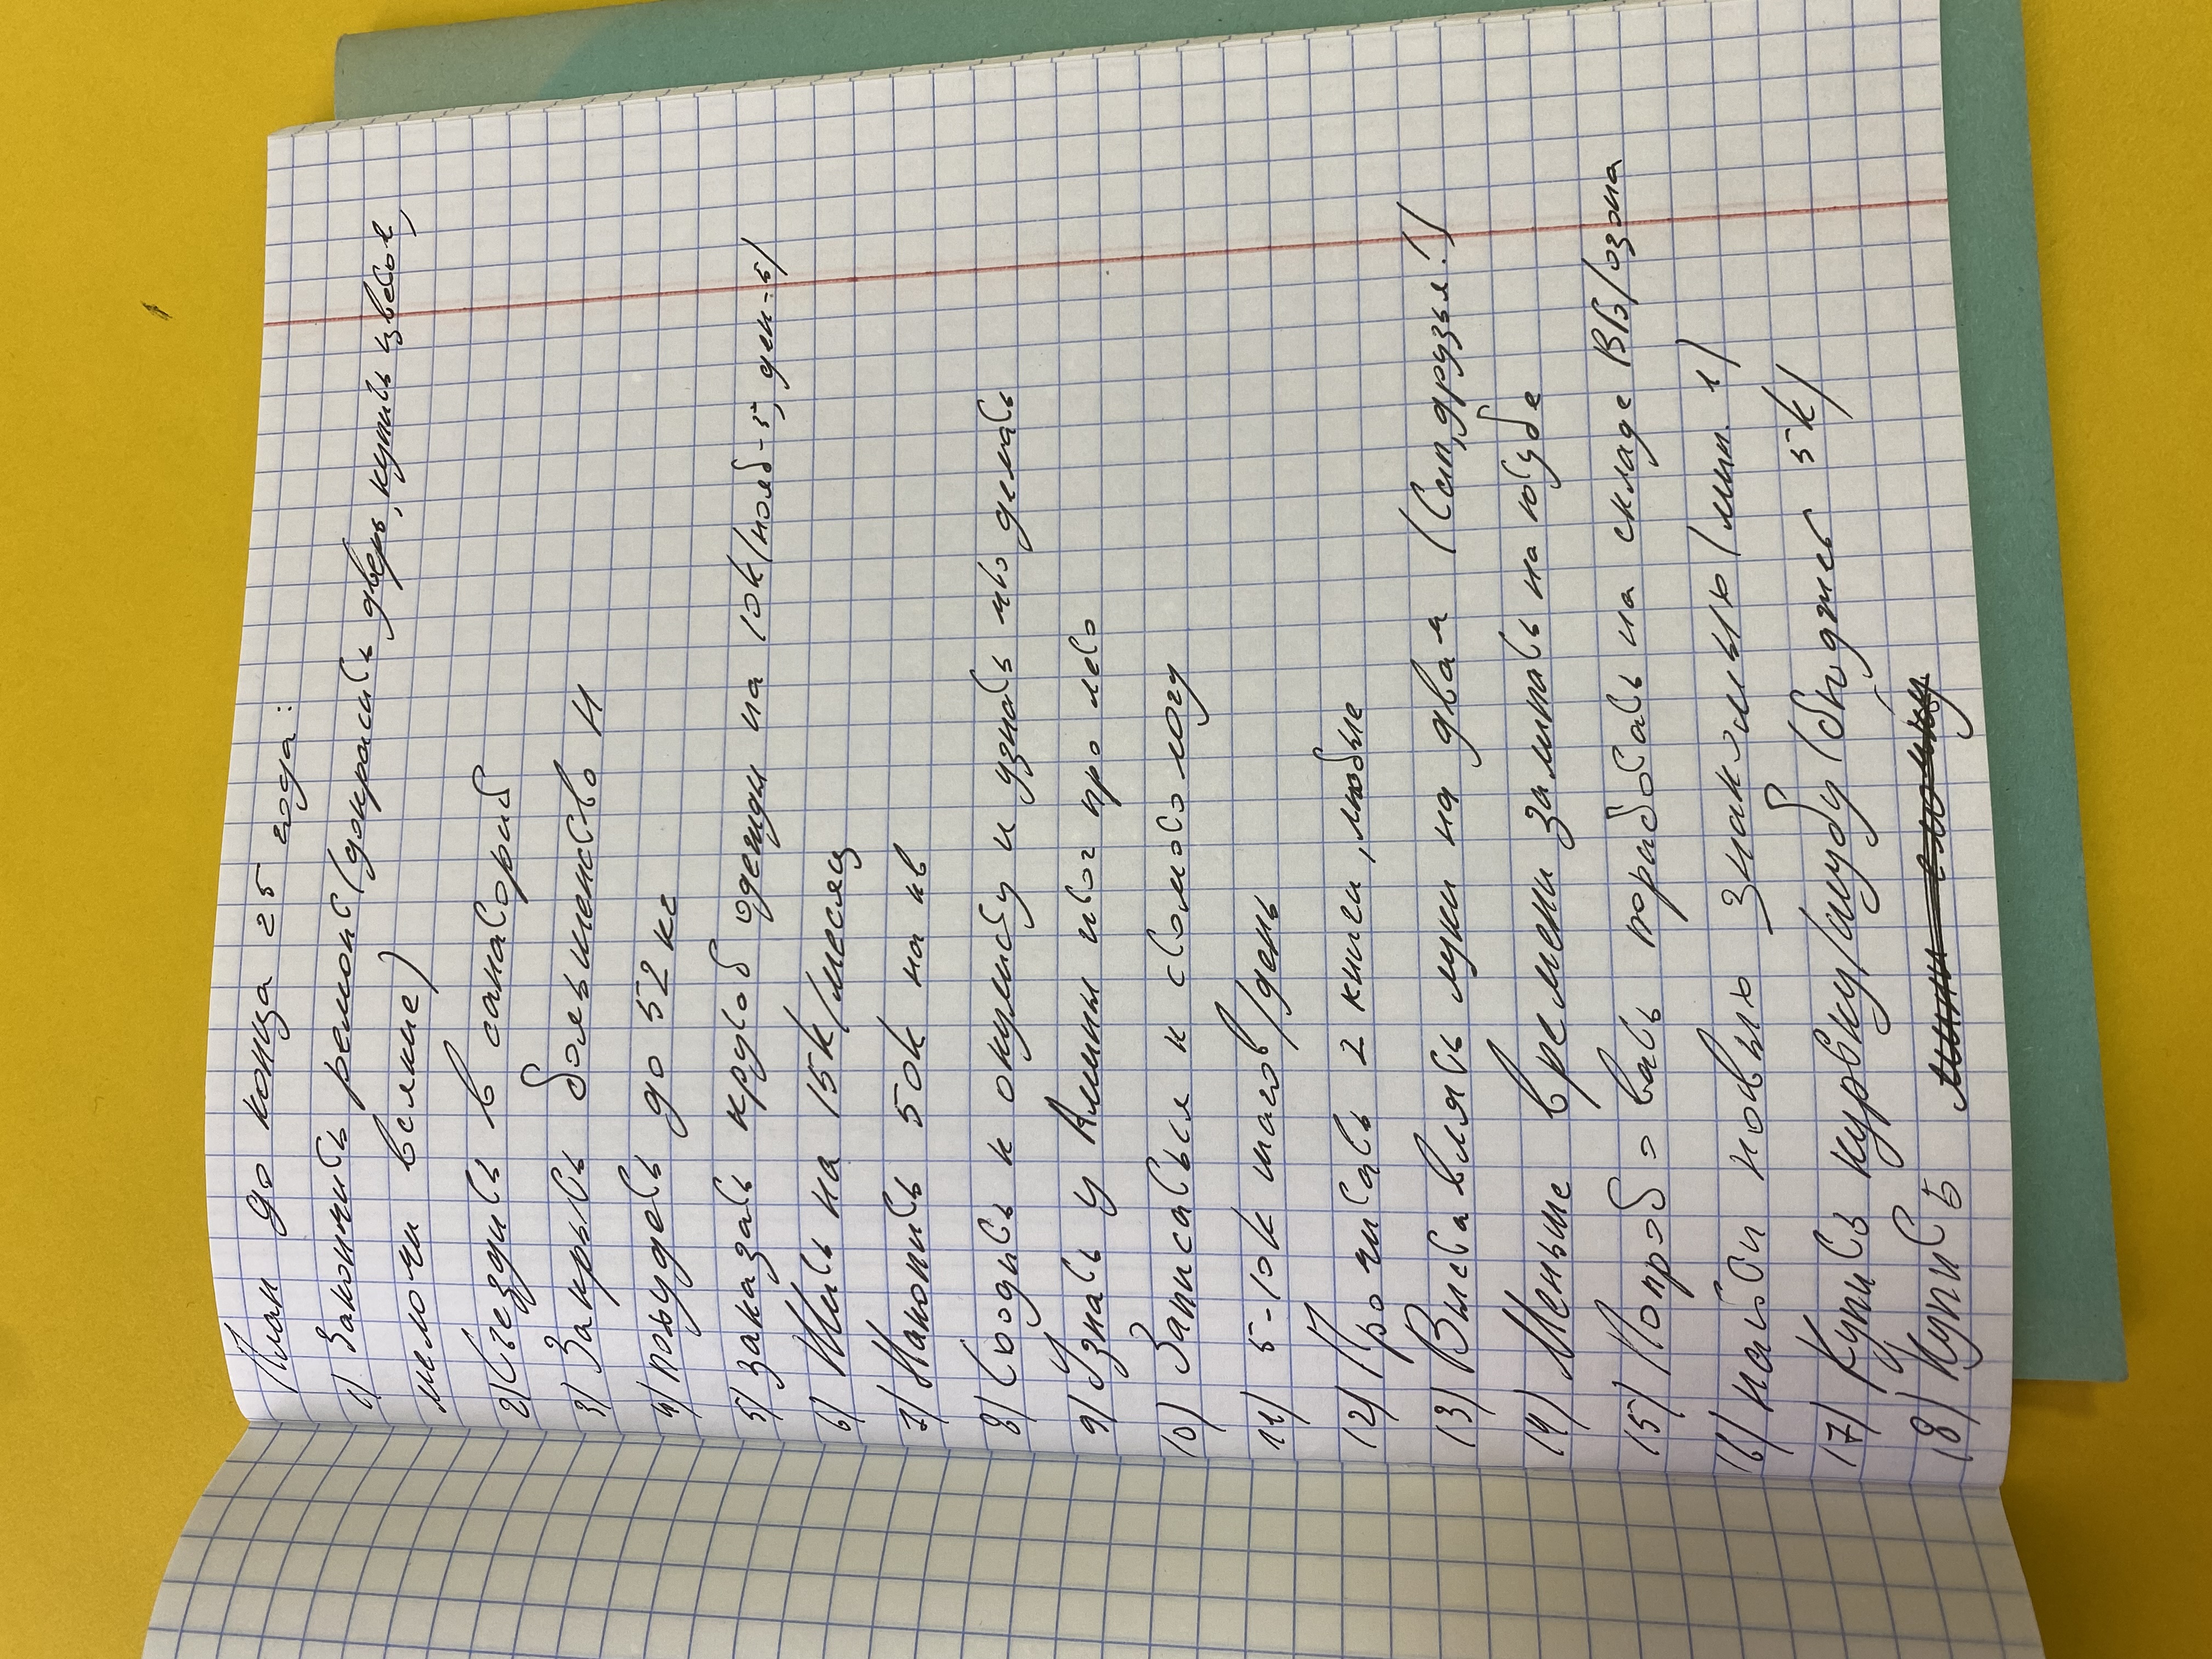 План до конца 25 года:
1) Закончить ремонт (докрасить дверь, купить цветок,
мелочи всякие)
2) Съездить в санаторий
3) Закрыть большинство Н
4) похудеть до 52 кг
5) заказать крутой одежды на 10к (нояб-5, дек-5)
6) Жить на 15к/месяц
7) Накопить 50к на нв
8) Сходить к окулисту и узнать что делать
9) Узнать у Алины итог про лето
10) Записаться к стоматологу
11) 5-10к шагов/день
12) Прочитать 2 книги, любые
13) Выставлять луки на два я (Сеп, друзья!)
14) Меньше времени залипать на ютубе
15) Попробовать поработать на складе ВБ/озона
16) найти новых знакомых (мин. 1)
17) Купить куртку/шубу (бюджет 5к)
18) Купить